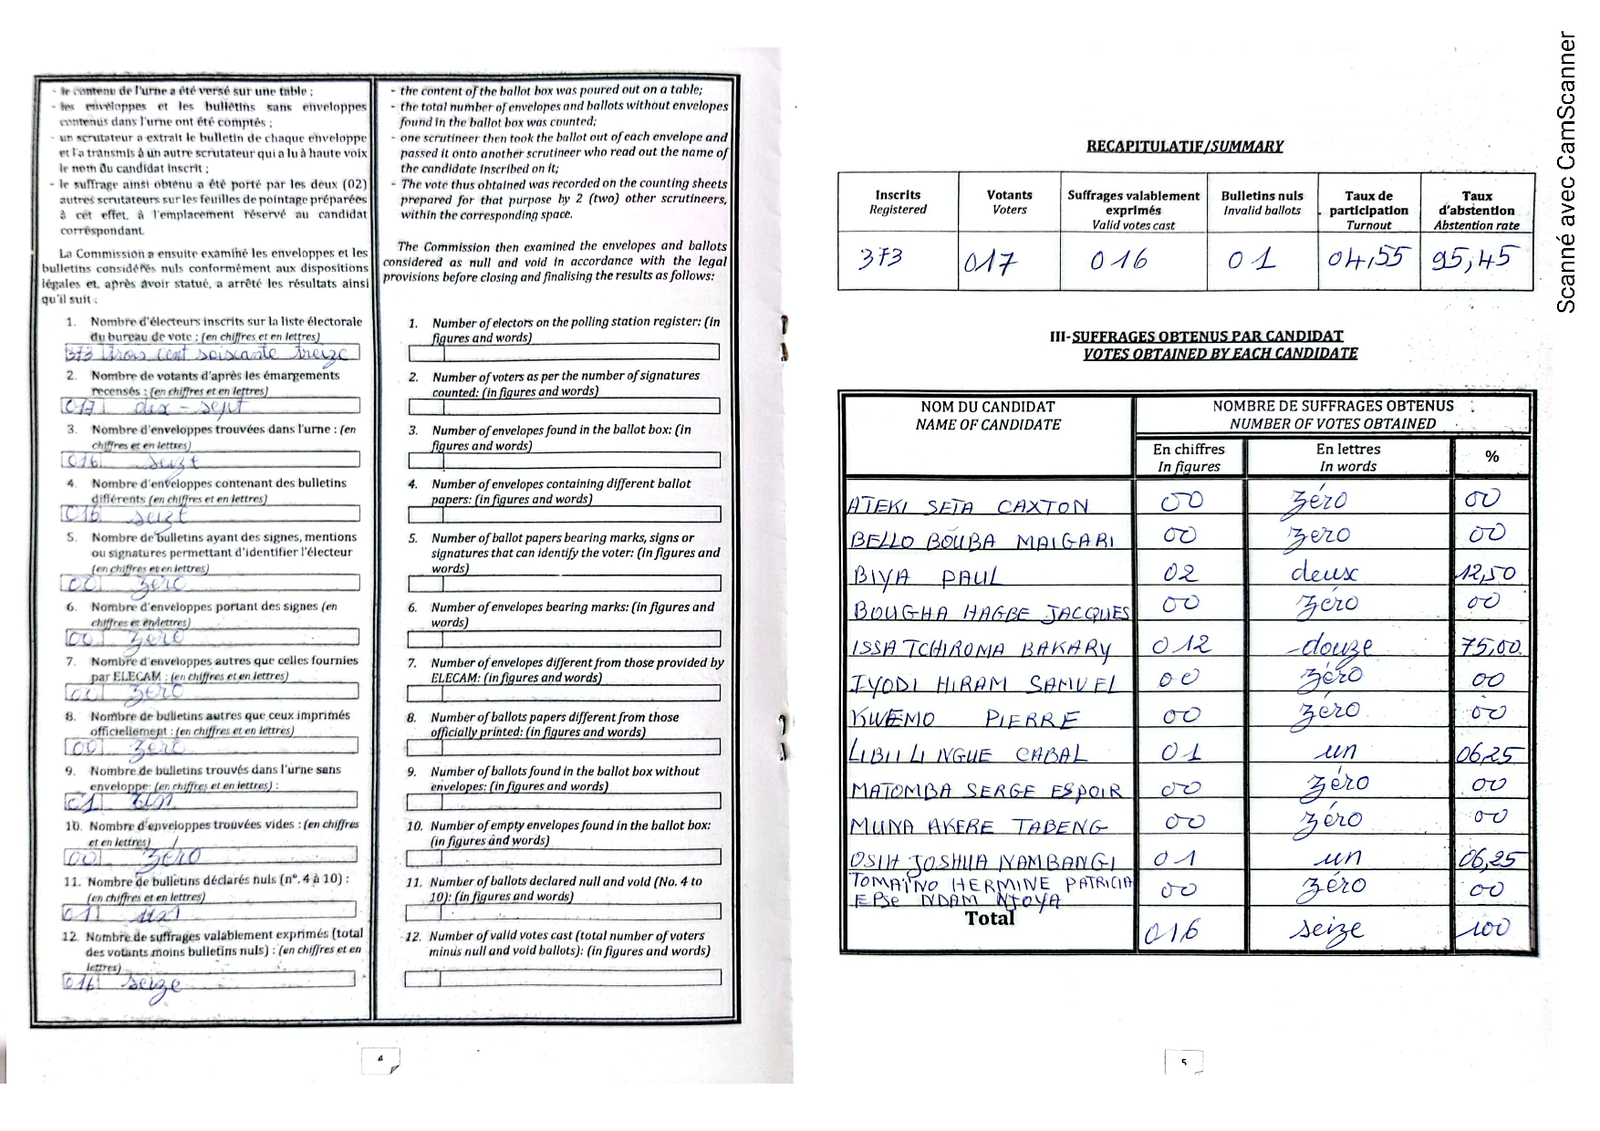 - le contenu de l'urne a été versé sur une table ;
- les enveloppes et les bulletins sans enveloppes
contenus dans l'urne ont été comptés ;
- un scrutateur a extrait le bulletin de chaque enveloppe
et l'a transmis à un autre scrutateur qui a lu à haute voix
le nom du candidat inscrit ;
- le suffrage ainsi obtenu a été porté par les deux (02)
autres scrutateurs sur les feuilles de pointage préparées
à cet effet, à l'emplacement réservé au candidat
correspondant.
La Commission a ensuite examiné les enveloppes et les
bulletins considérés nuls conformément aux dispositions
légales et, après avoir statué, a arrêté les résultats ainsi
qu'il suit :
1. Nombre d'électeurs inscrits sur la liste électorale
du bureau de vote : (en chiffres et en lettres)
373 trois cent soixante treize
2. Nombre de votants d'après les émargements
recensés : (en chiffres et en lettres)
017 dix-sept
3. Nombre d'enveloppes trouvées dans l'urne : (en
chiffres et en lettres)
016 seize
4. Nombre d'enveloppes contenant des bulletins
différents (en chiffres et en lettres)
016 seize
5. Nombre de bulletins ayant des signes, mentions
ou signatures permettant d'identifier l'électeur
(en chiffres et en lettres)
00 zéro
6. Nombre d'enveloppes portant des signes (en
chiffres et en lettres)
00 zéro
7. Nombre d'enveloppes autres que celles fournies
par ELECAM : (en chiffres et en lettres)
00 zéro
8. Nombre de bulletins autres que ceux imprimés
officiellement : (en chiffres et en lettres)
00 zéro
9. Nombre de bulletins trouvés dans l'urne sans
enveloppe: (en chiffres et en lettres) :
01 un
10. Nombre d'enveloppes trouvées vides : (en chiffres
et en lettres)
00 zéro
11. Nombre de bulletins déclarés nuls (n°. 4 à 10) :
(en chiffres et en lettres)
01 un
12. Nombre de suffrages valablement exprimés (total
des votants moins bulletins nuls) : (en chiffres et en
lettres)
016 seize
- the content of the ballot box was poured out on a table;
- the total number of envelopes and ballots without envelopes
found in the ballot box was counted;
- one scrutineer then took the ballot out of each envelope and
passed it onto another scrutineer who read out the name of
the candidate inscribed on it;
- The vote thus obtained was recorded on the counting sheets
prepared for that purpose by 2 (two) other scrutineers,
within the corresponding space.
The Commission then examined the envelopes and ballots
considered as null and void in accordance with the legal
provisions before closing and finalising the results as follows:
1. Number of electors on the polling station register: (in
figures and words)
2. Number of voters as per the number of signatures
counted: (in figures and words)
3. Number of envelopes found in the ballot box: (in
figures and words)
4. Number of envelopes containing different ballot
papers: (in figures and words)
5. Number of ballot papers bearing marks, signs or
signatures that can identify the voter: (in figures and
words)
6. Number of envelopes bearing marks: (in figures and
words)
7. Number of envelopes different from those provided by
ELECAM: (in figures and words)
8. Number of ballots papers different from those
officially printed: (in figures and words)
9. Number of ballots found in the ballot box without
envelopes: (in figures and words)
10. Number of empty envelopes found in the ballot box:
(in figures and words)
11. Number of ballots declared null and void (No. 4 to
10): (in figures and words)
12. Number of valid votes cast (total number of voters
minus null and void ballots): (in figures and words)
4
RECAPITULATIF/SUMMARY
Inscrits Votants Suffrages valablement Bulletins nuls Taux de Taux
Registered Voters exprimés Invalid ballots participation d'abstention
Valid votes cast Turnout Abstention rate
373 017 016 01 04,55 95,45
III- SUFFRAGES OBTENUS PAR CANDIDAT
VOTES OBTAINED BY EACH CANDIDATE
NOM DU CANDIDAT NOMBRE DE SUFFRAGES OBTENUS
NAME OF CANDIDATE NUMBER OF VOTES OBTAINED
En chiffres En lettres %
In figures In words
ATEKI SETA CAXTON 00 zéro 00
BELLO BOUBA MAIGARI 00 zéro 00
BIYA PAUL 02 deux 12,50
BOUGHA HAGBE JACQUES 00 zéro 00
ISSA TCHIROMA BAKARY 012 douze 75,00
IYODI HIRAM SAMUEL 00 zéro 00
KWEMO PIERRE 00 zéro 00
LIBII LI NGUE CABAL 01 un 06,25
MATOMBA SERGE ESPOIR 00 zéro 00
MUNA AKERE TABENG 00 zéro 00
OSIH JOSHUA NAMBANGI 01 un 06,25
TOMAINO HERMINE PATRICIA
EPSE NDAM NJOYA 00 zéro 00
Total 016 seize 100
5
Scanné avec CamScanner